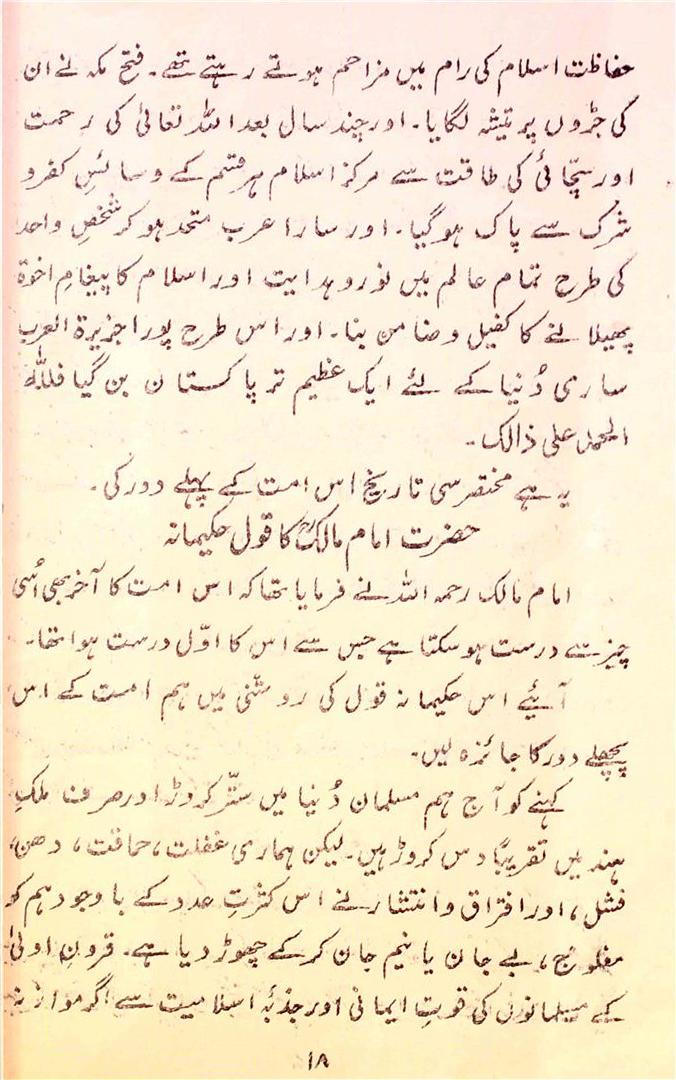 حفاظت اسلام کی راہ میں مزاحم ہوتے رہتے تھے۔ فتح مکہ نے ان
کی جڑوں پر تیشہ لگایا۔ اور چند سال بعد اللہ تعالیٰ کی رحمت
اور سچّائی کی طاقت سے مرکز اسلام ہر قسم کے وسائسِ کفر و
شرک سے پاک ہوگیا۔ اور سارا عرب متحد ہو کر شخصِ واحد
کی طرح تمام عالم میں نور و ہدایت اور اسلام کا پیغامِ اخوة
پھیلانے کا کفیل و ضامن بنا۔ اور اس طرح پورا جزیرة العرب
ساری دُنیا کے لئے ایک عظیم تر پاکستان بن گیا فللّٰہ
الحمد علی ذالک۔
یہ ہے مختصر سی تاریخ اس امت کے پہلے دور کی۔
حضرت امام مالکؒ کا قول حکیمانہ
امام مالک رحمہ اللہ نے فرمایا تھا کہ اس امت کا آخر بھی اُسی
چیز سے درست ہوسکتا ہے جس سے اس کا اوّل درست ہوا تھا۔
آئیے اس حکیمانہ قول کی روشنی میں ہم امت کے اس
پچھلے دور کا جائزہ لیں۔
کہنے کو آج ہم مسلمان دُنیا میں ستّر کروڑ اور صرف ملکِ
ہند میں تقریباً دس کروڑ ہیں۔ لیکن ہماری غفلت، حماقت، دھن،
فشل، اور افتراق و انتشار نے اس کثرتِ عدد کے باوجود ہم کو
مفلوج، بے جان یا نیم جان کر کے چھوڑ دیا ہے۔ قرونِ اولیٰ
کے مسلمانوں کی قوتِ ایمانی اور جذبۂ اسلامیت سے اگر موازنہ
۱۸